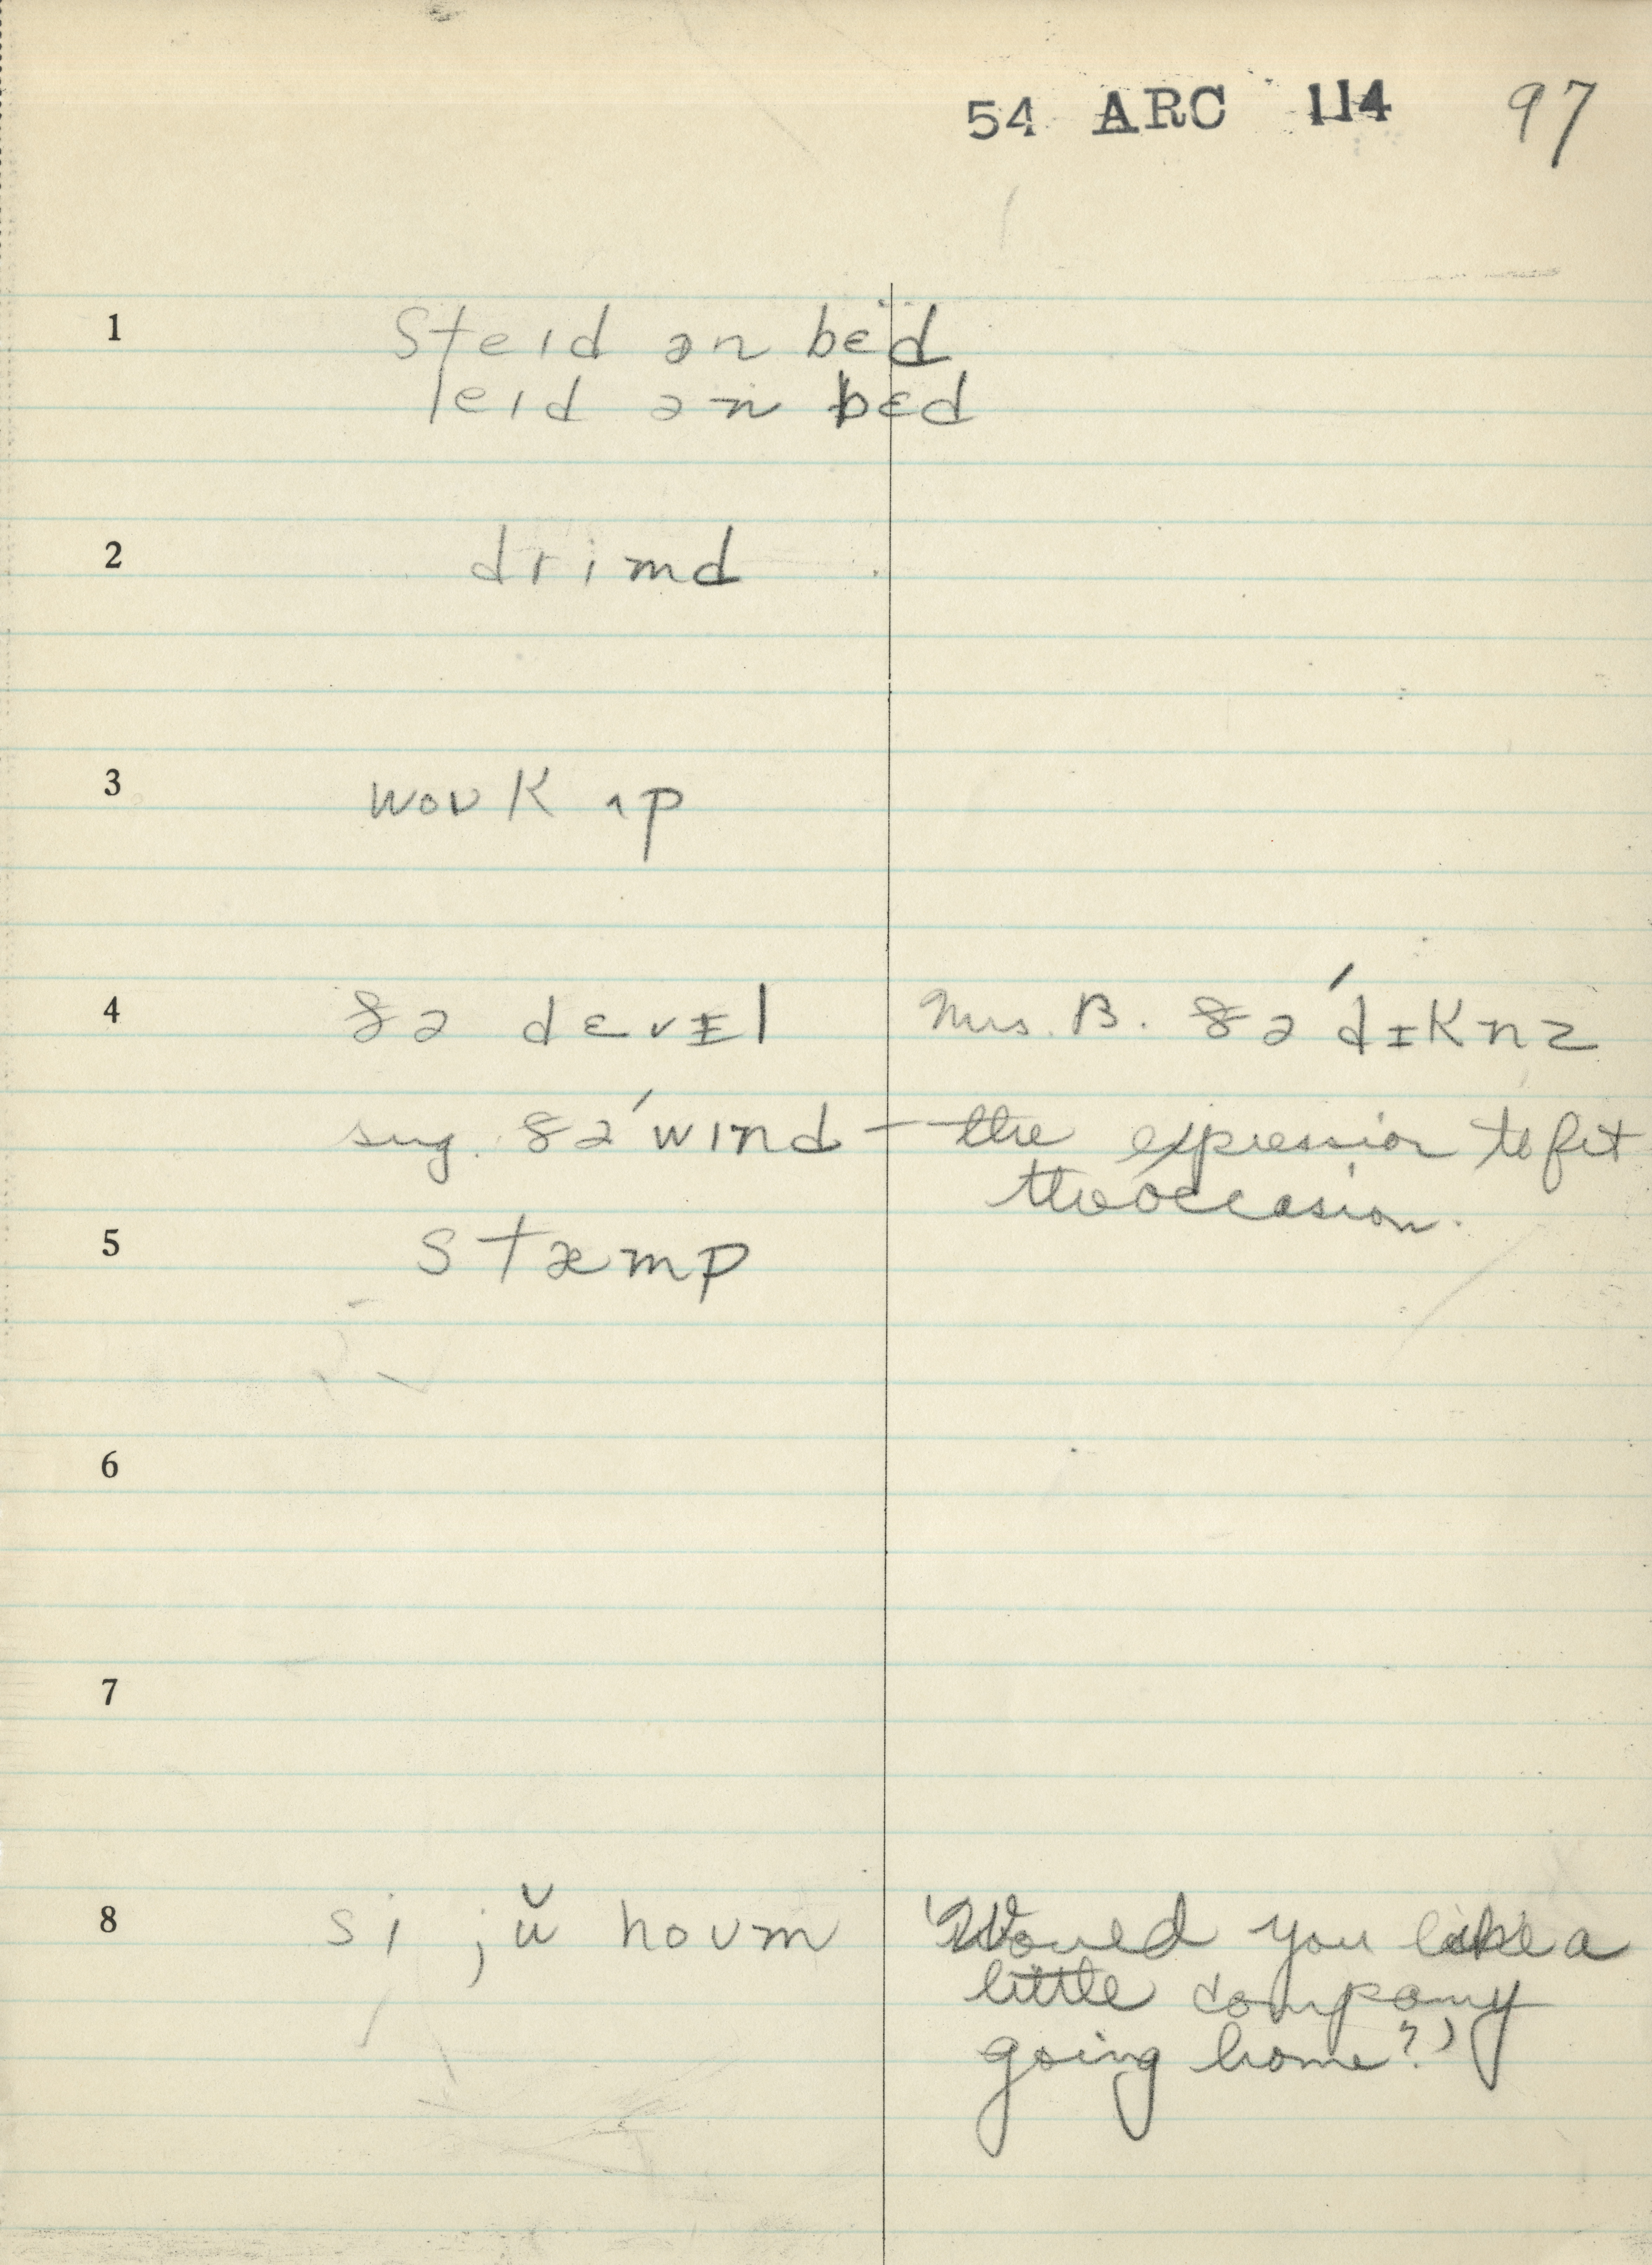 54 ARC 114 97
1 steɪd ən bɛd
leɪd ən bɛd
2 drimd
3 woʊk ʌp
4 ðə dɛvɪl Mrs. B. ðə ˈdɪknz
sug. ðə ˈwɪnd — the expression to fit
the occasion.
5 stæmp
6
7
8 si jŭ hoʊm 'Would you like a
little company
going home?'